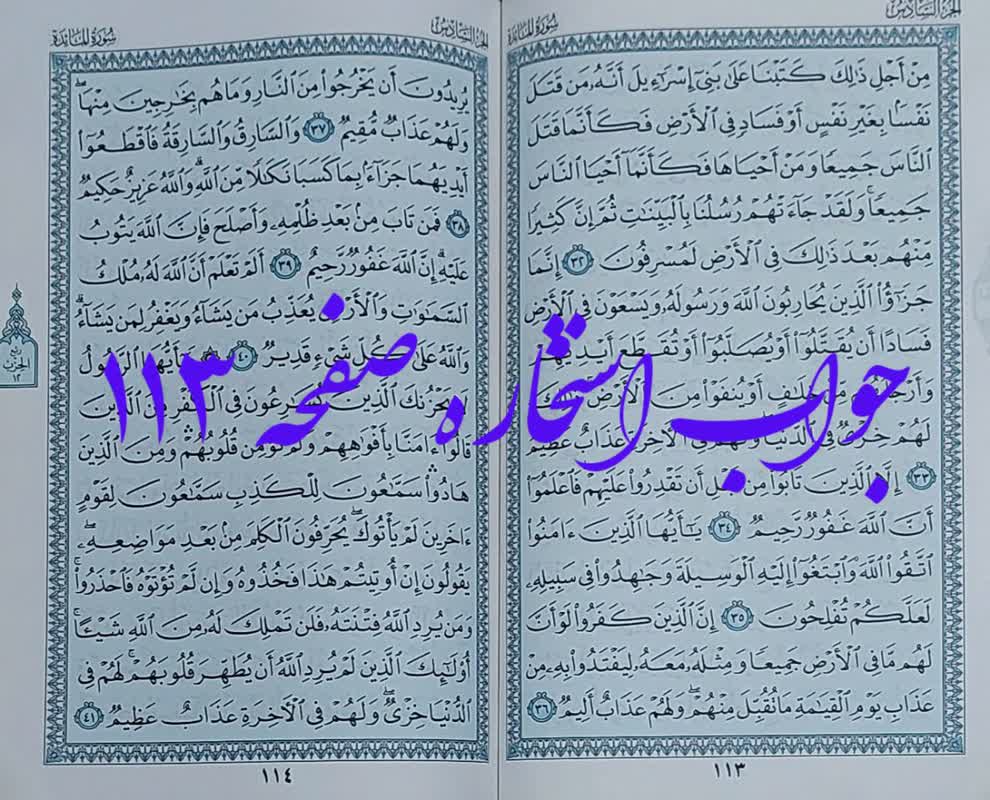 الجزء السادس
سورة المائدة
مِنْ أَجْلِ ذَٰلِكَ كَتَبْنَا عَلَىٰ بَنِىٓ إِسْرَٰٓءِيلَ أَنَّهُۥ مَن قَتَلَ
نَفْسًۢا بِغَيْرِ نَفْسٍ أَوْ فَسَادٍ فِى ٱلْأَرْضِ فَكَأَنَّمَا قَتَلَ
ٱلنَّاسَ جَمِيعًا وَمَنْ أَحْيَاهَا فَكَأَنَّمَآ أَحْيَا ٱلنَّاسَ
جَمِيعًا ۚ وَلَقَدْ جَآءَتْهُمْ رُسُلُنَا بِٱلْبَيِّنَٰتِ ثُمَّ إِنَّ كَثِيرًا
مِّنْهُم بَعْدَ ذَٰلِكَ فِى ٱلْأَرْضِ لَمُسْرِفُونَ ٣٢ إِنَّمَا
جَزَٰٓؤُا۟ ٱلَّذِينَ يُحَارِبُونَ ٱللَّهَ وَرَسُولَهُۥ وَيَسْعَوْنَ فِى ٱلْأَرْضِ
فَسَادًا أَن يُقَتَّلُوٓا۟ أَوْ يُصَلَّبُوٓا۟ أَوْ تُقَطَّعَ أَيْدِيهِمْ
وَأَرْجُلُهُم مِّنْ خِلَٰفٍ أَوْ يُنفَوْا۟ مِنَ ٱلْأَرْضِ ۚ ذَٰلِكَ
لَهُمْ خِزْىٌ فِى ٱلدُّنْيَا ۖ وَلَهُمْ فِى ٱلْءَاخِرَةِ عَذَابٌ عَظِيمٌ
٣٣ إِلَّا ٱلَّذِينَ تَابُوا۟ مِن قَبْلِ أَن تَقْدِرُوا۟ عَلَيْهِمْ ۖ فَٱعْلَمُوٓا۟
أَنَّ ٱللَّهَ غَفُورٌ رَّحِيمٌ ٣٤ يَٰٓأَيُّهَا ٱلَّذِينَ ءَامَنُوا۟
ٱتَّقُوا۟ ٱللَّهَ وَٱبْتَغُوٓا۟ إِلَيْهِ ٱلْوَسِيلَةَ وَجَٰهِدُوا۟ فِى سَبِيلِهِۦ
لَعَلَّكُمْ تُفْلِحُونَ ٣٥ إِنَّ ٱلَّذِينَ كَفَرُوا۟ لَوْ أَنَّ
لَهُم مَّا فِى ٱلْأَرْضِ جَمِيعًا وَمِثْلَهُۥ مَعَهُۥ لِيَفْتَدُوا۟ بِهِۦ مِنْ
عَذَابِ يَوْمِ ٱلْقِيَٰمَةِ مَا تُقُبِّلَ مِنْهُمْ ۖ وَلَهُمْ عَذَابٌ أَلِيمٌ ٣٦
١١٣
الجزء السادس
سورة المائدة
يُرِيدُونَ أَن يَخْرُجُوا۟ مِنَ ٱلنَّارِ وَمَا هُم بِخَٰرِجِينَ مِنْهَا ۖ
وَلَهُمْ عَذَابٌ مُّقِيمٌ ٣٧ وَٱلسَّارِقُ وَٱلسَّارِقَةُ فَٱقْطَعُوٓا۟
أَيْدِيَهُمَا جَزَآءًۢ بِمَا كَسَبَا نَكَٰلًا مِّنَ ٱللَّهِ ۗ وَٱللَّهُ عَزِيزٌ حَكِيمٌ
٣٨ فَمَن تَابَ مِنۢ بَعْدِ ظُلْمِهِۦ وَأَصْلَحَ فَإِنَّ ٱللَّهَ يَتُوبُ
عَلَيْهِ ۗ إِنَّ ٱللَّهَ غَفُورٌ رَّحِيمٌ ٣٩ أَلَمْ تَعْلَمْ أَنَّ ٱللَّهَ لَهُۥ مُلْكُ
ٱلسَّمَٰوَٰتِ وَٱلْأَرْضِ يُعَذِّبُ مَن يَشَآءُ وَيَغْفِرُ لِمَن يَشَآءُ ۗ
وَٱللَّهُ عَلَىٰ كُلِّ شَىْءٍ قَدِيرٌ ٤٠ يَٰٓأَيُّهَا ٱلرَّسُولُ
لَا يَحْزُنكَ ٱلَّذِينَ يُسَٰرِعُونَ فِى ٱلْكُفْرِ مِنَ ٱلَّذِينَ
قَالُوٓا۟ ءَامَنَّا بِأَفْوَٰهِهِمْ وَلَمْ تُؤْمِن قُلُوبُهُمْ ۛ وَمِنَ ٱلَّذِينَ
هَادُوا۟ ۛ سَمَّٰعُونَ لِلْكَذِبِ سَمَّٰعُونَ لِقَوْمٍ
ءَاخَرِينَ لَمْ يَأْتُوكَ ۖ يُحَرِّفُونَ ٱلْكَلِمَ مِنۢ بَعْدِ مَوَاضِعِهِۦ ۖ
يَقُولُونَ إِنْ أُوتِيتُمْ هَٰذَا فَخُذُوهُ وَإِن لَّمْ تُؤْتَوْهُ فَٱحْذَرُوا۟ ۚ
وَمَن يُرِدِ ٱللَّهُ فِتْنَتَهُۥ فَلَن تَمْلِكَ لَهُۥ مِنَ ٱللَّهِ شَيْـًٔا ۚ
أُو۟لَٰٓئِكَ ٱلَّذِينَ لَمْ يُرِدِ ٱللَّهُ أَن يُطَهِّرَ قُلُوبَهُمْ ۚ لَهُمْ فِى
ٱلدُّنْيَا خِزْىٌ ۖ وَلَهُمْ فِى ٱلْءَاخِرَةِ عَذَابٌ عَظِيمٌ ٤١
١١٤
ربع
الحزب
١٢
جواب استخاره صفحه ۱۱۳